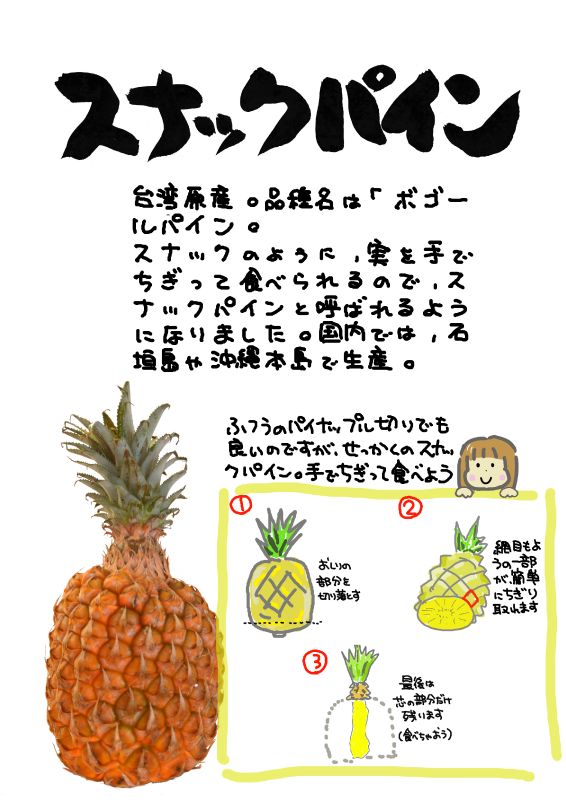 スナックパイン
台湾原産。品種名は「ボゴー
ルパイン。
スナックのように,実を手で
ちぎって食べられるので,ス
ナックパインと呼ばれるよう
になりました。国内では,石
垣島や沖縄本島で生産。
ふつうのパイナップル切りでも
良いのですが、せっかくのスナッ
クパイン。手でちぎって食べよう
①
おしりの
部分を
切り落とす
②
網目もよ
うの一部
が、簡単
にちぎり
取れます
③
最後は
芯の部分だけ
残います
(食べちゃおう)